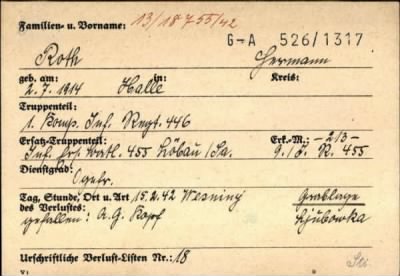 Familien- u. Vorname: 13/18755/42
G-A 526/1317
Roth Hermann
geb. am: in: Kreis:
2.7.1914 Halle
Truppenteil:
1. Komp. Inf. Regt. 446
Ersatz-Truppenteil: Erk.-M.: -213-
Inf. Ers. Batl. 455 Löbau/Sa. 9./I. R. 455
Dienstgrad:
Ogefr.
Tag, Stunde, Ort u. Art 15.2.42 Wesniny Grablage
des Verlustes: Ljubowka
gefallen: A.G. Kopf
Urschriftliche Verlust-Listen Nr.: 18